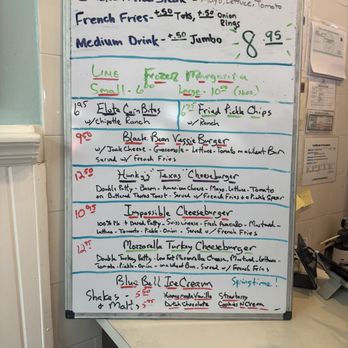 Mayo, Lettuce, Tomato
French Fries - +.50 Tots, +.50 Onion Rings
Medium Drink - +.50 Jumbo
8.95
Lime Frozen Margarita
Small - 6.00 Large - 10.00
6.95 Elote Corn Bites
w/ Chipotle Ranch
Fried Pickle Chips
w/ Ranch
9.50 Black Bean Veggie Burger
w/ Jack Cheese - Guacamole - Lettuce - Tomato on a Wheat Bun
Served w/ French Fries
12.50 Hunky's "Texas" Cheeseburger
Double Patty - Bacon - American Cheese - Mayo - Lettuce - Tomato
on Buttered Texas Toast - Served w/ French Fries + a Pickle Spear
Impossible Cheeseburger
Mustard -
Lettuce - Tomato - Pickle - Onion - Served w/ French Fries
Mozzarella Turkey Cheeseburger
Double Turkey Patty - Low Fat Mozzarella Cheese, Mustard - Lettuce -
Tomato - Pickle - Onion - on a Wheat Bun - Served w/ French Fries
Blue Bell Ice Cream Springtime!
Shakes -
+ Malts
Homemade Vanilla Strawberry
Dutch Chocolate Cookies N Cream